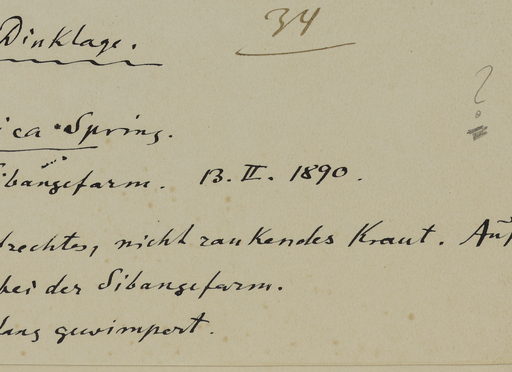 34
Dinklage.
ica Spring.
?
Sibangefarm. 13. II. 1890.
drechtes, nicht rankendes Kraut. Auf
bei der Sibangefarm.
lang gewimpert.